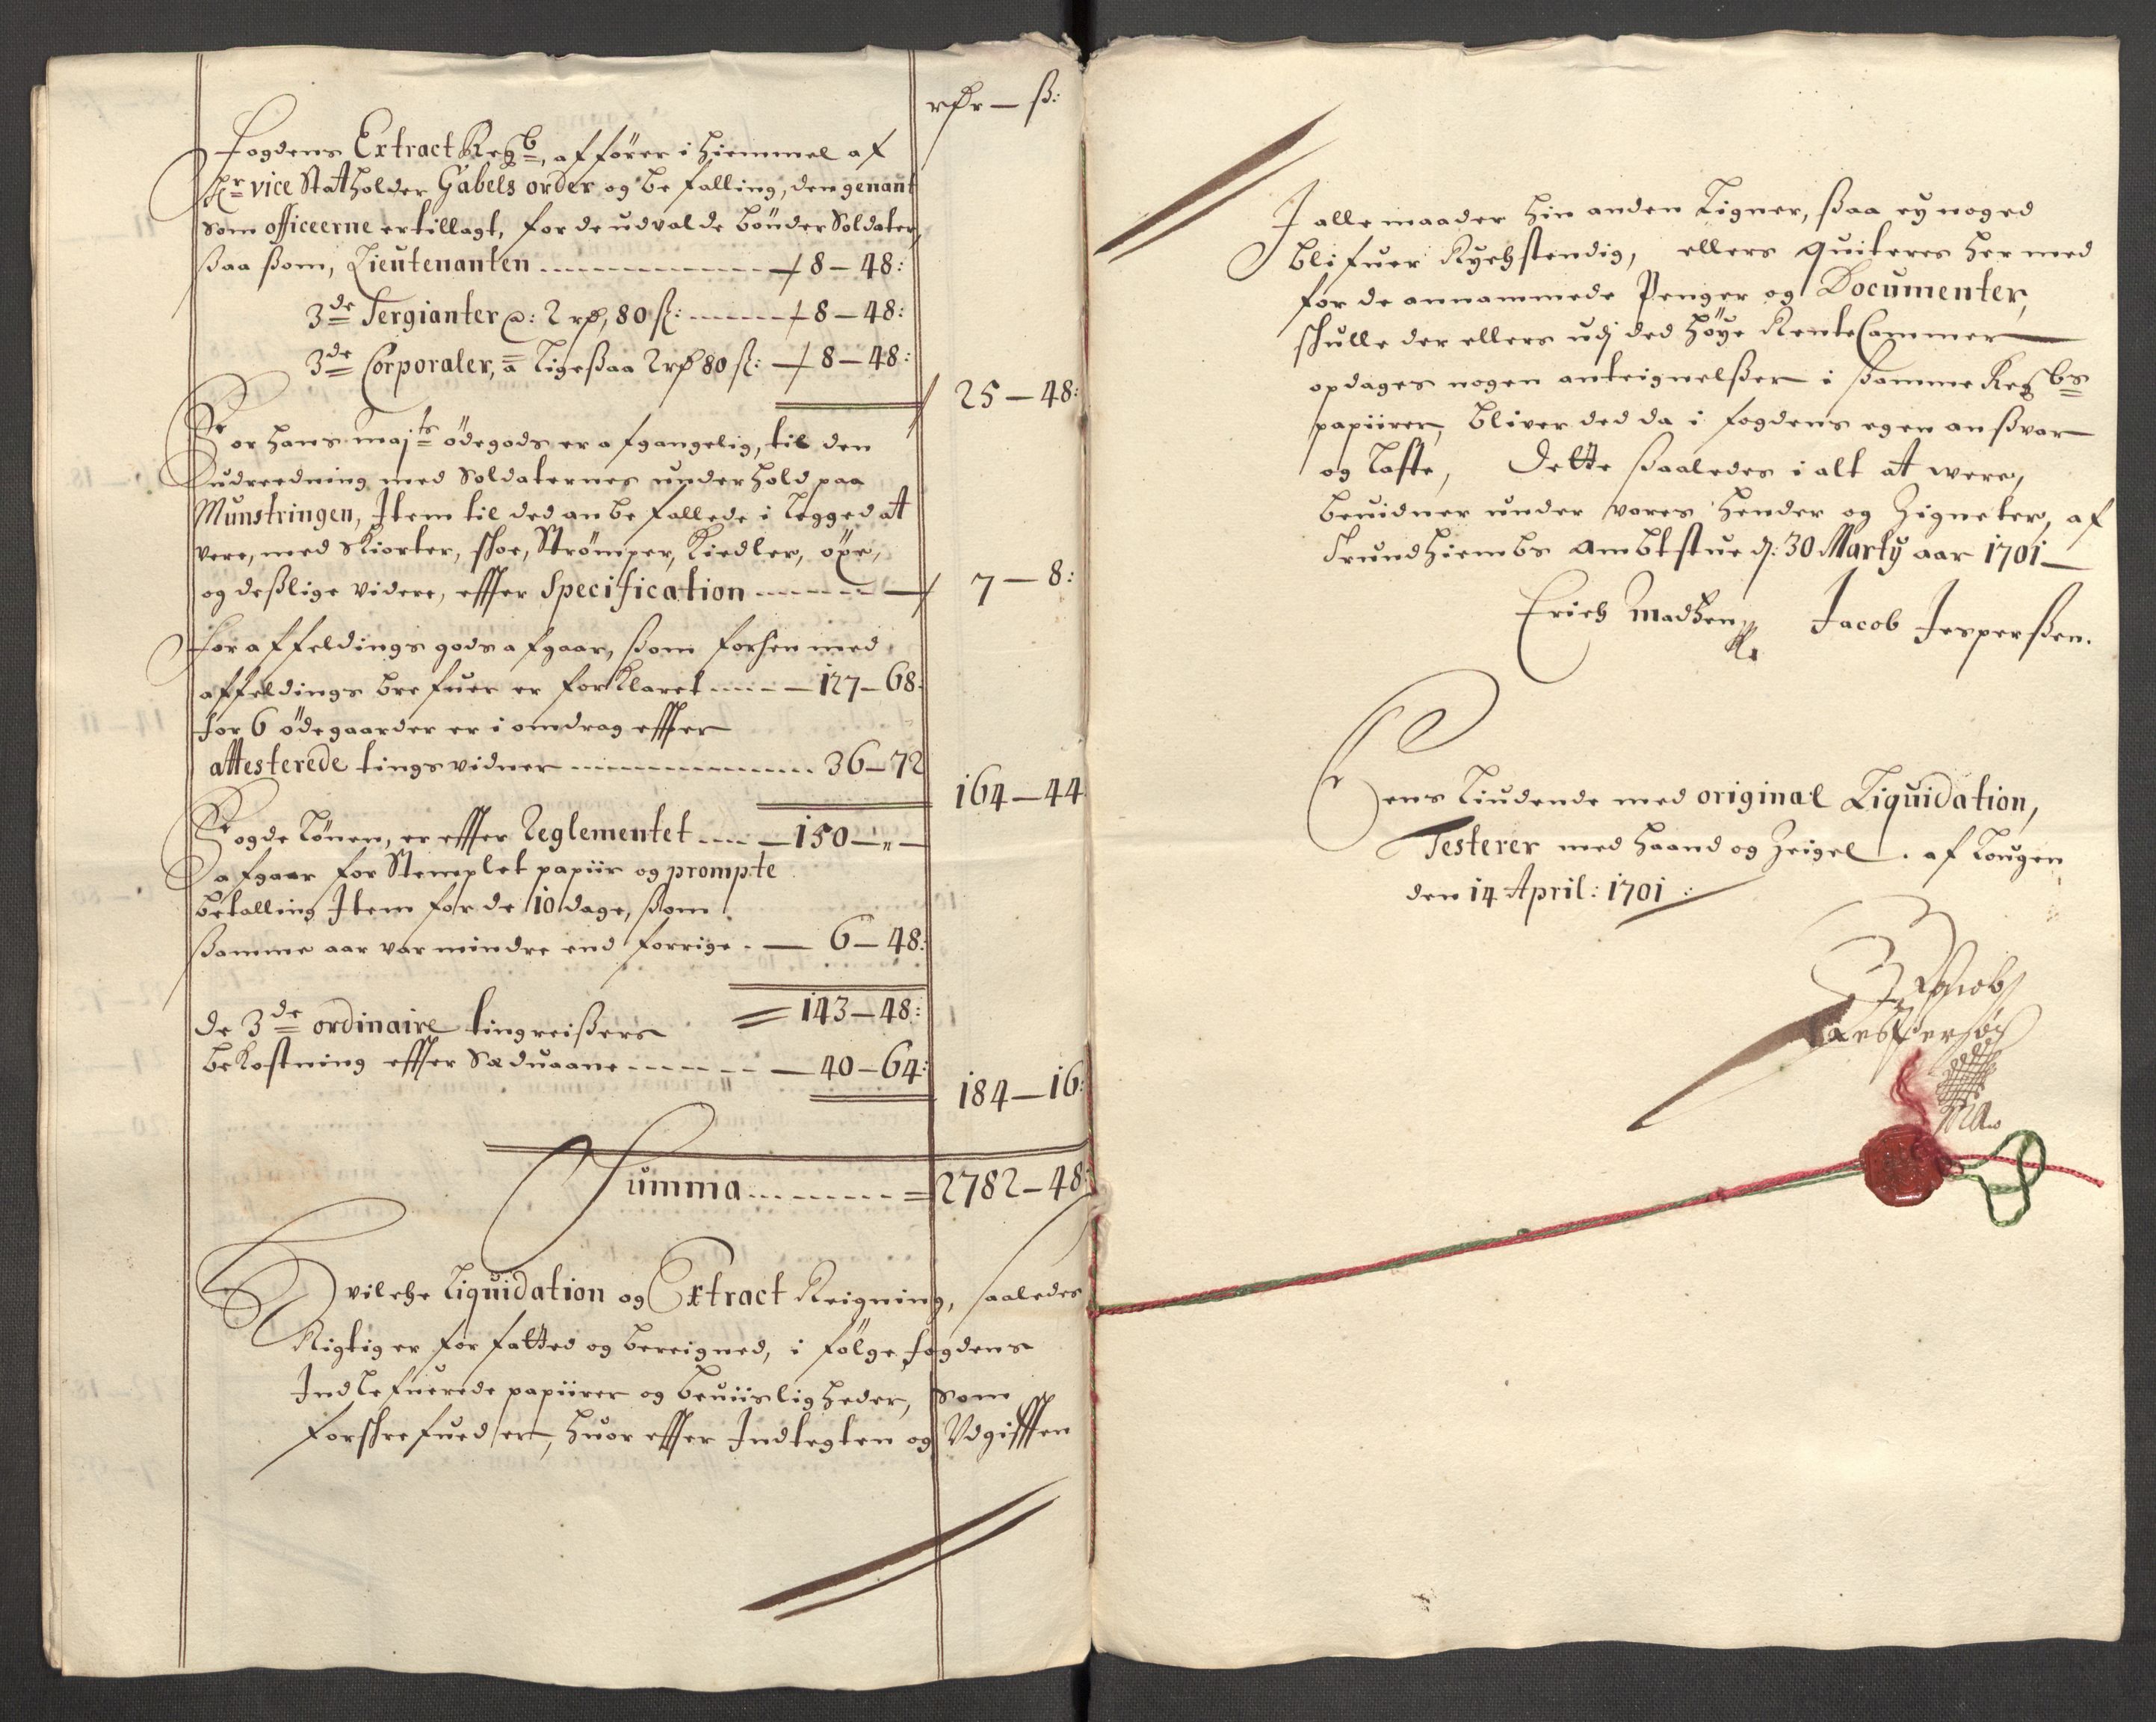 rdr — ß:
Fogdens Extract Regb, affører i hiemmel af
Hr vice Statholder Gabels order og befalling, den genant
som officeerne er tillagt, for de udvalde bönder Soldater,
ßaa ßom, Lieutenanten ---------- 8 — 48:
3de Sergianter @: 2 rd, 80 ß: ------ 8 — 48:
3de Corporaler, a ligeßaa 2 rd 80 ß: — 8 — 48:
25 — 48:
For hans majts ödegods er afgangelig, til den
udreedning med Soldaternes underhold paa
Munstringen, Item til ded anbefallede i legged at
vere, med Skiorter, shoe, Strömper, Kiedler, öxe,
og deßlige videre, effter Specification ------ — 7 — 8:
For affeldings gods afgaar, ßom forhen med
affeldings brefuer er forklaret ----- 127 — 68:
for 6 ödegaarder er i omdrag effter
attesterede tingsvidner ---------- 36 — 72
164 — 44
Fogde lönen, er effter Reglementet ---- 150 — „ —
afgaar for Stemplet papiir og prompte
betalling Item for de 10 dage, ßom
ßamme aar var mindre end forrige . — 6 — 48:
= 143 — 48:
de 3de ordinaire tingreißers
bekostning effter Sæduaane ------ 40 — 64:
184 — 16:
Summa --------- = 2782 — 48:
Hvilche Liquidation og Extract Reigning, saaledes
Rigtig er forfatted og bereigned, i fölge fogdens
Indlefuerede papiirer og beuiisligheder, som
forschrefued er, huor effter Indtegten og Udgifften
I alle maader hin anden ligner, ßaa ey noged
blifuer Rychstendig, ellers quiteres her med
for de annammede Penger og Documenter,
schulle der ellers udj ded höye RenteCammer
opdages nogen anteignelßer i ßamme Regbs
papiirer, bliver ded da i fogdens egen anßvar
og laste, Dette ßaaledes i alt at were,
beuidner under vores hender og Zigneter, af
Trundhiembs Ambtstue d: 30 Marty aar 1701
Erich Madßen Jacob Jesperßen.
Ens liudende med original Liquidation,
Testerer med haand og Zeigel . af Lougen
den 14 April: 1701 :
Jacob
Jespersøn